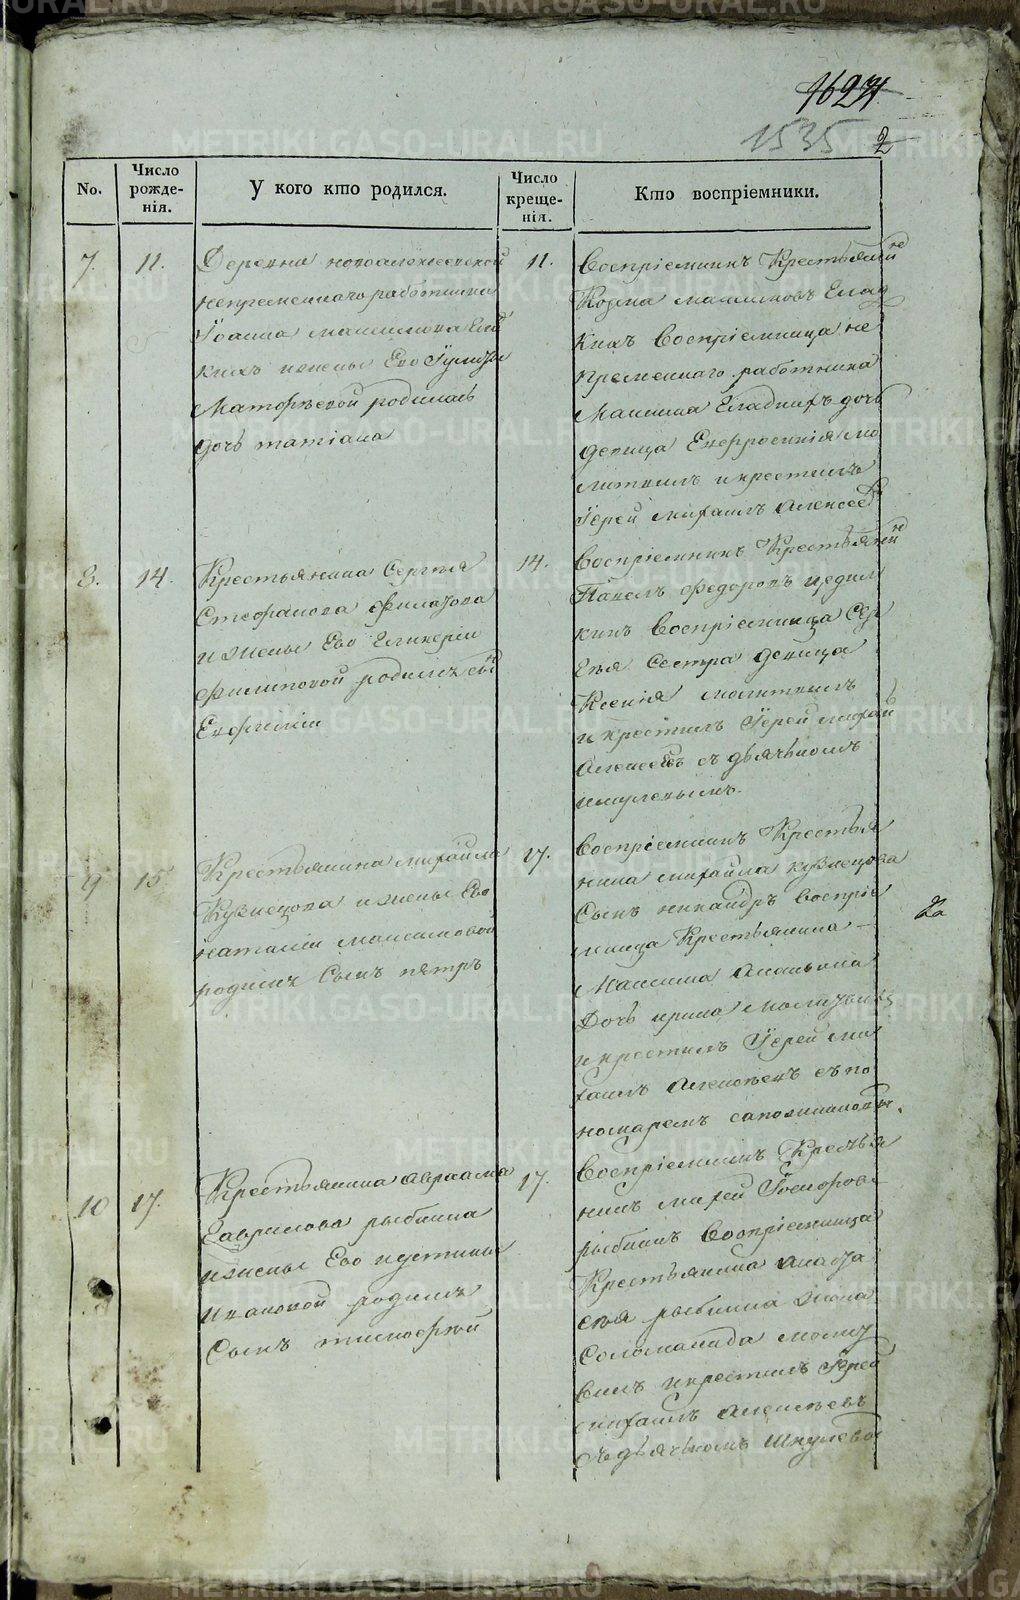 1535
2
No.
Число рожде-нія.
У кого кто родился.
Число креще-нія.
Кто воспріемники.
7.
11.
Деревни новоалексеевской
непременнаго работника
Іоанна максимова Глад
кихъ и жены Его Іулиты
родилась
дочь татіана
11.
Воспріемникъ Крестьянинъ
Козма Глад
кихъ Воспріемница не
пременнаго работника
Максима Гладкихъ дочь
девица Евфросинія мо
литвилъ и крестилъ
Іерей михаилъ Алексеевъ
8.
14.
Крестьянина Сергея
Стефанова филатова
и жены Его Гликеріи
филиповой родился сынъ
Евфиміи
14.
Воспріемникъ Крестьянинъ
Павелъ федоровъ
кинъ Воспріемница Сер
гея Сестра девица
Ксенія молитвилъ
и крестилъ Іерей михаилъ
Алексеевъ съ дьячькомъ
9
15
Крестьянина михаила
Кузнецова и жены Его
наталіи максимовой
родился Сынъ петръ
17.
Воспріемникъ Крестья
нина михаила кузнецова
Сынъ никандръ Воспріе
мница Крестьянина
Максима Ананьина
Дочь ирина молитвилъ
и крестилъ Іерей ми
хаилъ Алексеевъ съ по
номаремъ сапожниковымъ.
10
17.
Крестьянина Авраама
Гаврилова рыбина
и жены Его иустины
ивановой родился
Сынъ тимофей
17.
Воспріемникъ Крестья
нинъ
рыбинъ Воспріемница
Крестьянина Афана
сея рыбина жена
Соломанида молит
вилъ и крестилъ Іерей
михаилъ Алексеевъ
Съ дьячькомъ Шкулевы
METRIKI.GASO-URAL.RU